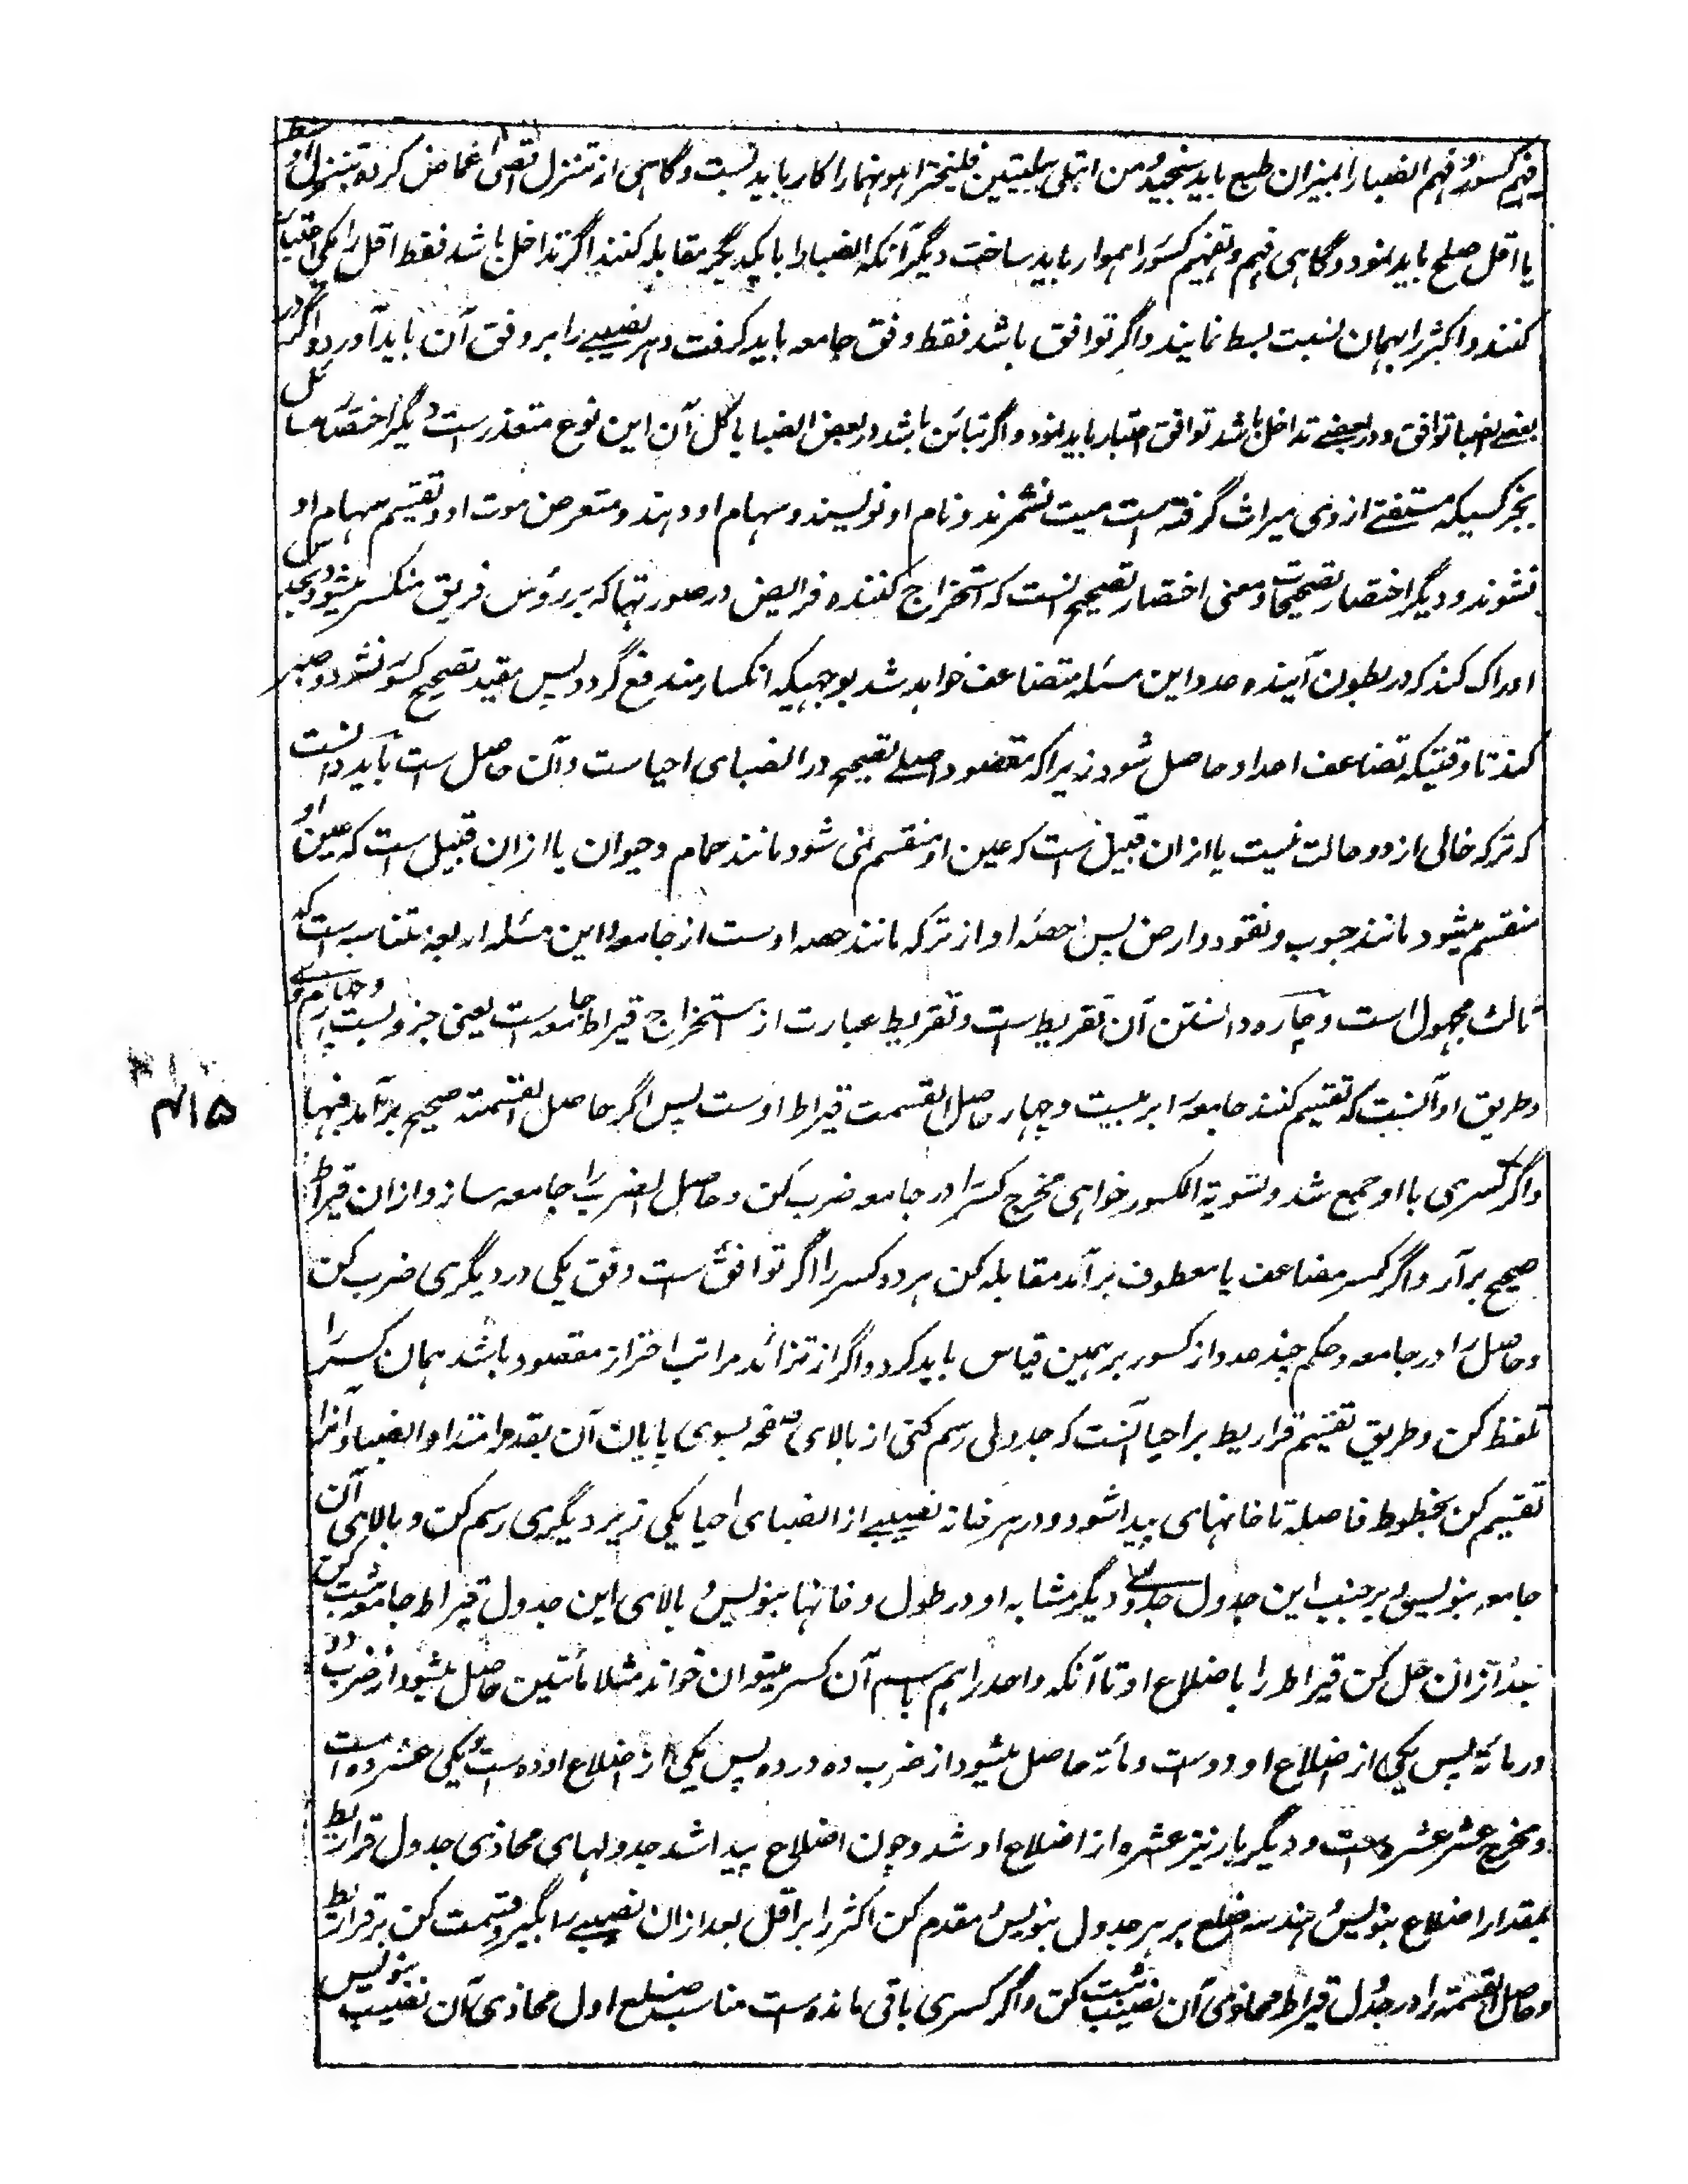 فهم کسور و فهم انصبا را بمیزان طبع باید سنجید و من ابتلی ببلیتین فلیختر اهونهما را کار باید بست و گاهی از تنزل اقصی اغماض کرده بتنزل اوسط
یا اقل صلح باید نمود و گاهی فهم و تفهیم کسور را هموار باید ساخت دیگر آنکه انصبا را با یکدیگر مقابله کنند اگر تداخل باشد فقط اقل را یکی اعتبار
کنند و اکثر را بهمان نسبت بسط نمایند و اگر توافق باشد فقط وفق جامعه باید گرفت و هر نصیبے را بر وفق آن باید آورد و اگر در
بعضے انصبا توافق و در بعضے تداخل باشد توافق اعتبار باید نمود و اگر تباین باشد در بعض انصبا یا کل آن این نوع متعذر است و دیگر اختصار مسائل
بجز کسیکه مستفتے از وی میراث گرفته است میت نشمرند و نام او نویسند و سهام او دهند و متعرض موت او و تقسیم سهام او
نشوند و دیگر اختصار تصحیحات و معنی اختصار تصحیح آنست که استخراج کننده فرایض در صورتها که بر رؤس فریق منکسر میشود و بحدس
ادراک کند که در بطون آینده عدد این مسئله متضاعف خواهد شد بوجهیکه انکسار مندفع گردد پس مقید تصحیح کسور نشود و صبر
کند تا وقتیکه تضاعف اعداد حاصل شود زیرا که مقصود اصلے تصحیح در انصبای احیا ست و آن حاصل است باید دانست
که ترکه خالی از دو حالت نیست یا ازان قبیل است که عین او منقسم نمی شود مانند حمام و حیوان یا ازان قبیل است که عین او
منقسم میشود مانند حبوب و نقود و ارض پس حصهٔ او از ترکه مانند حصه اوست از جامعه و این مسئله اربعه متناسبه است که
ثالث مجهول است و چاره دانستن آن تقریط ست و تقریط عبارت از استخراج قیراط جامعه است یعنی جزو بست و چهارم وے
و طریق او آنست که تقسیم کنند جامعه را بر بیست و چهار حاصل القسمت قیراط اوست پس اگر حاصل القسمته صحیح برآمد فبها
و اگر کسری با او جمع شد و تسویة الکسور خواهی مخرج کسر را در جامعه ضرب کن و حاصل الضرب را جامعه ساز و ازان قیراط
صحیح برآر و اگر کسر مضاعف یا معطوف برآمد مقابله کن هر دو کسر را اگر توافق است وفق یکی در دیگری ضرب کن
و حاصل را در جامعه و حکم چند عدد از کسور بر همین قیاس باید کرد و اگر از تزائد مراتب احتراز مقصود باشد همان کسر را
تلفظ کن و طریق تقسیم قراریط بر احیا آنست که جدولی رسم کنی از بالای صفحه بسوی پایان آن بقدر امتداد انصبا و آنرا
تقسیم کن بخطوط فاصله تا خانهای پیدا شود و در هر خانه نصیبے از انصبای احیا یکی زیر دیگری رسم کن و بالای آن
جامعه بنویس و بر جنب این جدول جدولے دیگر مشابه او در طول و خانها بنویس و بالای این جدول قیراط جامعه ثبت کن
بعد ازان حل کن قیراط را باضلاع او تا آنکه واحد را هم باسم آن کسر میتوان خواند مثلا مأتین حاصل میشود از ضرب دو
در مائة پس یکی از اضلاع او دو ست و مأته حاصل میشود از ضرب ده در ده پس یکی از اضلاع او ده ست و یکی عشر ده است
و مخرج عشر عشره است و دیگر بار نیز عشره از اضلاع او شد و چون اضلاع پیدا شد جدولهای محاذی جدول قراریط
بمقدار اضلاع بنویس و هندسه ضلع بر هر جدول بنویس و مقدم کن اکثر را بر اقل بعد ازان نصیبے را بگیر و قسمت کن بر قراریط
و حاصل القسمته را در جدول قیراط محاذی آن نصیب ثبت کن و اگر کسری باقی مانده است مناسب ضلع اول محاذی آن نصیب بنویس
۴۱۵